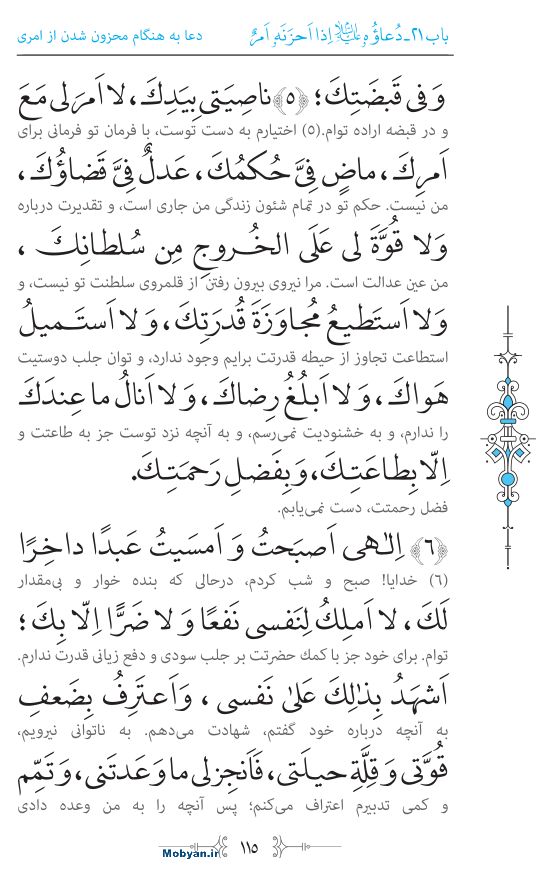 باب ۲۱-دُعاؤُهُ علیه‌السلام اِذا اَحزَنَهُ اَمرٌ دعا به هنگام محزون شدن از امری
وَ فى قَبضَتِكَ؛ ﴿۵﴾ ناصِيَتى بِيَدِكَ، لا اَمرَ لى مَعَ
و در قبضه اراده توام.(۵) اختیارم به دست توست، با فرمان تو فرمانی برای
اَمرِكَ، ماضٍ فِىَّ حُكمُكَ، عَدلٌ فِىَّ قَضاؤُكَ،
من نیست. حکم تو در تمام شئون زندگی من جاری است، و تقدیرت درباره
وَلا قُوَّةَ لى عَلَى الخُروجِ مِن سُلطانِكَ ،
من عین عدالت است. مرا نیروی بیرون رفتن از قلمروی سلطنت تو نیست، و
وَلا اَستَطيعُ مُجاوَزَةَ قُدرَتِكَ، وَ لا اَستَميلُ
استطاعت تجاوز از حیطه قدرتت برایم وجود ندارد، و توان جلب دوستیت
هَواكَ، وَ لا اَبلُغُ رِضاكَ، وَ لا اَنالُ ما عِندَكَ
را ندارم، و به خشنودیت نمی‌رسم، و به آنچه نزد توست جز به طاعتت و
اِلّا بِطاعَتِكَ، وَ بِفَضلِ رَحمَتِكَ.
فضل رحمتت، دست نمی‌یابم.
﴿۶﴾ اِلٰهى اَصبَحتُ وَ اَمسَيتُ عَبدًا داخِرًا
(۶) خدایا! صبح و شب کردم، درحالی که بنده خوار و بی‌مقدار
لَكَ، لا اَملِكُ لِنَفسى نَفعًا وَ لا ضَرًّا اِلّا بِكَ؛
توام. برای خود جز با کمك حضرتت بر جلب سودی و دفع زیانی قدرت ندارم.
اَشهَدُ بِذٰلِكَ عَلىٰ نَفسى ، وَ اَعتَرِفُ بِضَعفِ
به آنچه درباره خود گفتم، شهادت می‌دهم. به ناتوانی نیرویم،
قُوَّتى وَ قِلَّةِ حيلَتى، فَاَنجِز لى ما وَعَدتَنى، وَ تَمِّم
و کمی تدبیرم اعتراف می‌کنم؛ پس آنچه را به من وعده دادی
۱۱۵
Mobyan.ir